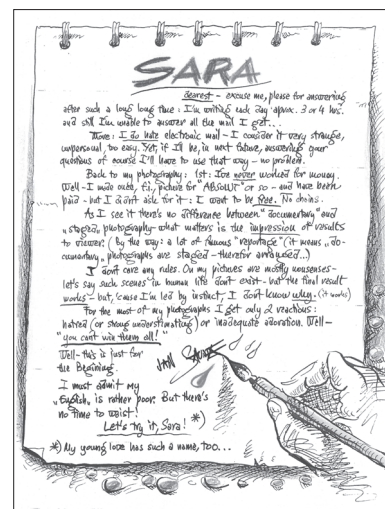 SARA
dearest – excuse me, please for answering
after such a long long time : I'm writing each day aprox. 3 or 4 hrs.
and still I'm unable to answer all the mail I get...
More : I do hate electronic mail – I consider it very strange,
unpersonal, too easy. Yet, if I'll be, in next future, answering your
questions of course I'll have to use that way – no problem.
Back to my photography : 1st : I've never worked for money.
Well – I made once, f.i., picture for "ABSOLUT" or so – and have been
paid – but I didn't ask for it : I want to be free. No chains.
As I see it there's no difference between "documentary" and
"staged" photography – what matters is the impression of results
to viewer. (by the way : a lot of famous "reportage" (it means "do-
cumentary" photographs are staged – therefor arranged...)
I don't care any rules. On my pictures are mostly nonsenses –
let's say such scenes in human life don't exist – but the final result
works – but, 'cause I'm led by instinct, I don't know why. (it works)
For the most of my photographs I get only 2 reactions :
hatred (or strong underestimating) or inadequate adoration. Well –
"you can't win them all!"
Well – this is just for
the Begining.
I must admit my
"English" is rather poor. But there's
no time to waist!
Let's try it, Sara! *)
*) My young love has such a name, too...